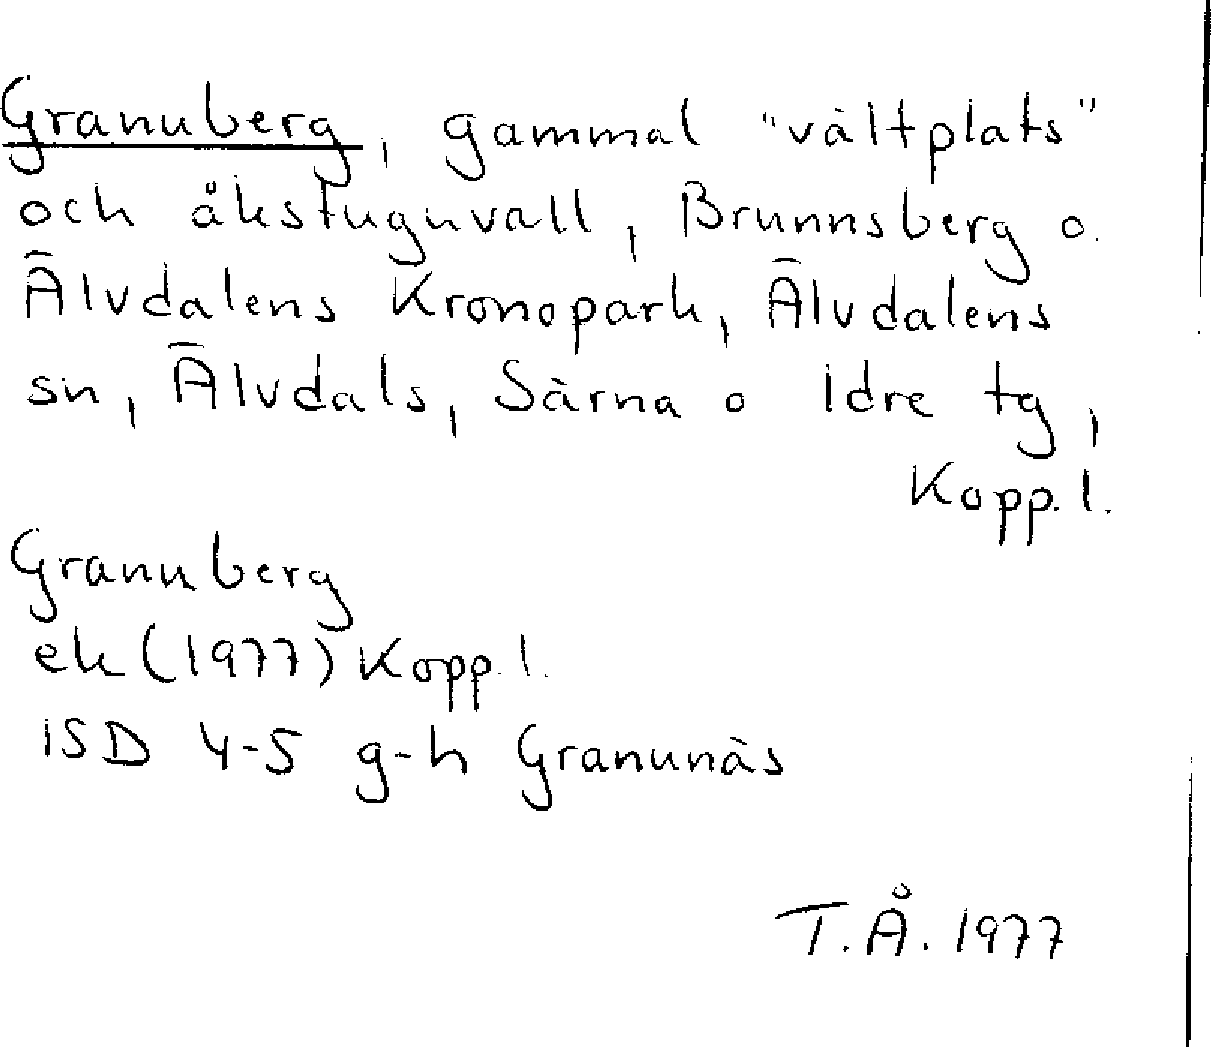 Granuberg, gammal "vältplats"
och åkstuguvall, Brunnsberg o.
Älvdalens Kronopark, Älvdalens
sn, Älvdals, Särna o Idre tg,
Kopp. l.
Granuberg
ek (1977) Kopp. l.
15D 4-5 g-h Granunäs
T.Å. 1977